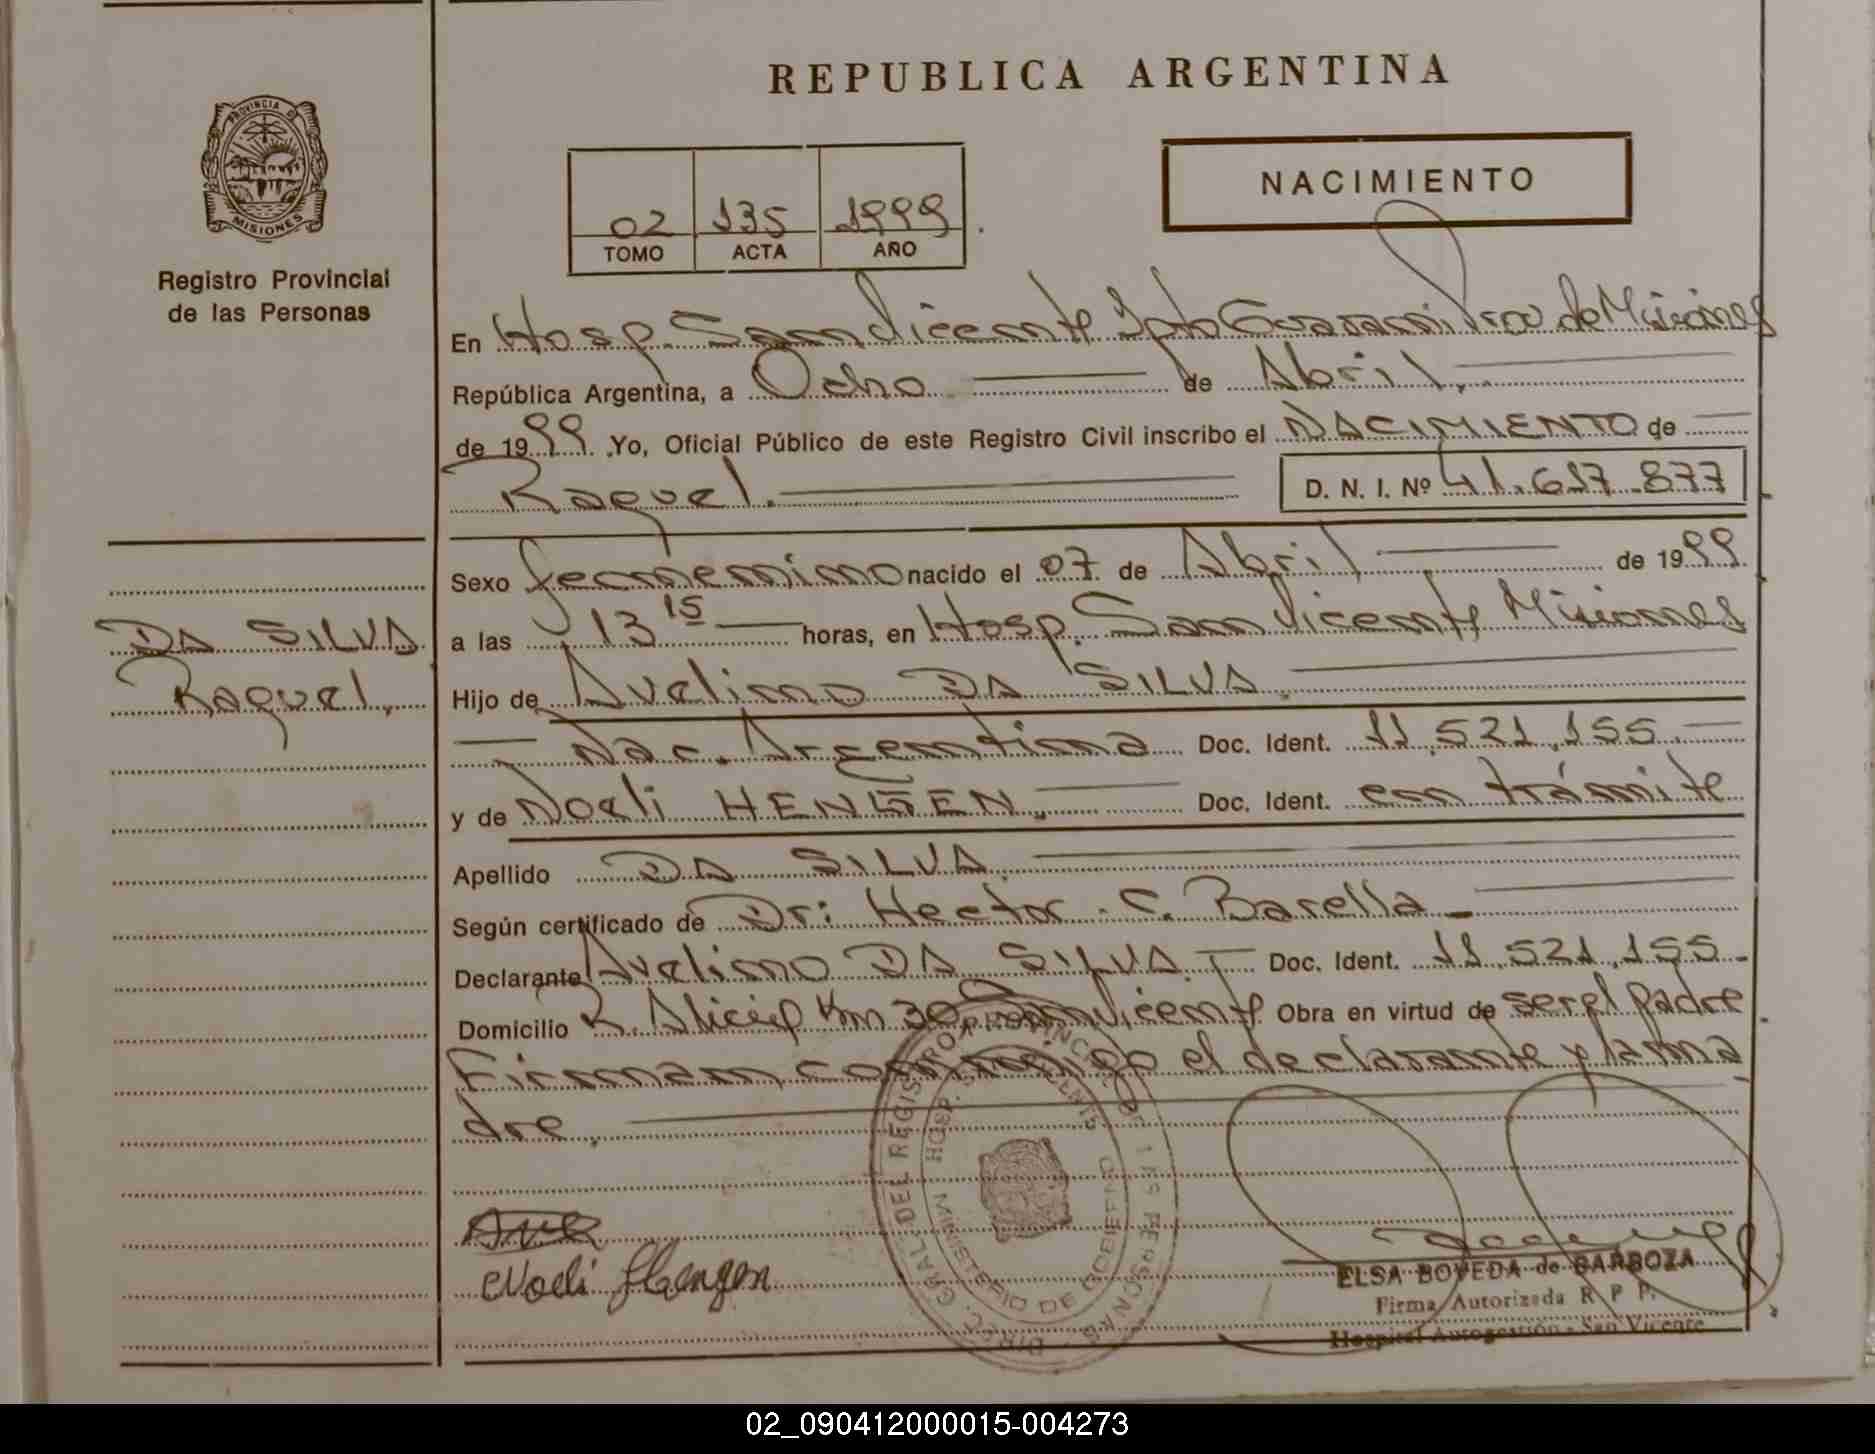 REPUBLICA ARGENTINA
PROVINCIA
MISIONES
Registro Provincial
de las Personas
NACIMIENTO
02 135 1999
TOMO ACTA AÑO
En Hosp. San Vicente Dpto Guarani Prov de Misiones
República Argentina, a Ocho de Abril.
de 1999. Yo, Oficial Público de este Registro Civil inscribo el NACIMIENTO de
Raquel. D. N. I. Nº 41.617.877
Sexo femenino nacido el 07 de Abril de 1999.
DA SILVA
Raquel.
a las 13 15 horas, en Hosp. San Vicente Misiones
Hijo de Avelino DA SILVA.
Nac. Argentina Doc. Ident. 11.521.155.
y de Noeli HENGEN. Doc. Ident. en trámite
Apellido DA SILVA.
Según certificado de Dr: Hector. C. Barella
Declarante Avelino DA SILVA. Doc. Ident. 11.521.155.
Domicilio Km 30 San Vicente Obra en virtud de ser el padre
Firman conmigo el declarante y la ma
dre.
DIREC. GRAL. DEL REGISTRO PROVINCIAL DE LAS PERSONAS
HOSP. SAN VICENTE
MINISTERIO DE GOBIERNO
Noeli Hengen
ELSA BOVEDA de BARBOZA
Firma Autorizada R. P. P.
Hospital Autogestión - San Vicente
02_090412000015-004273